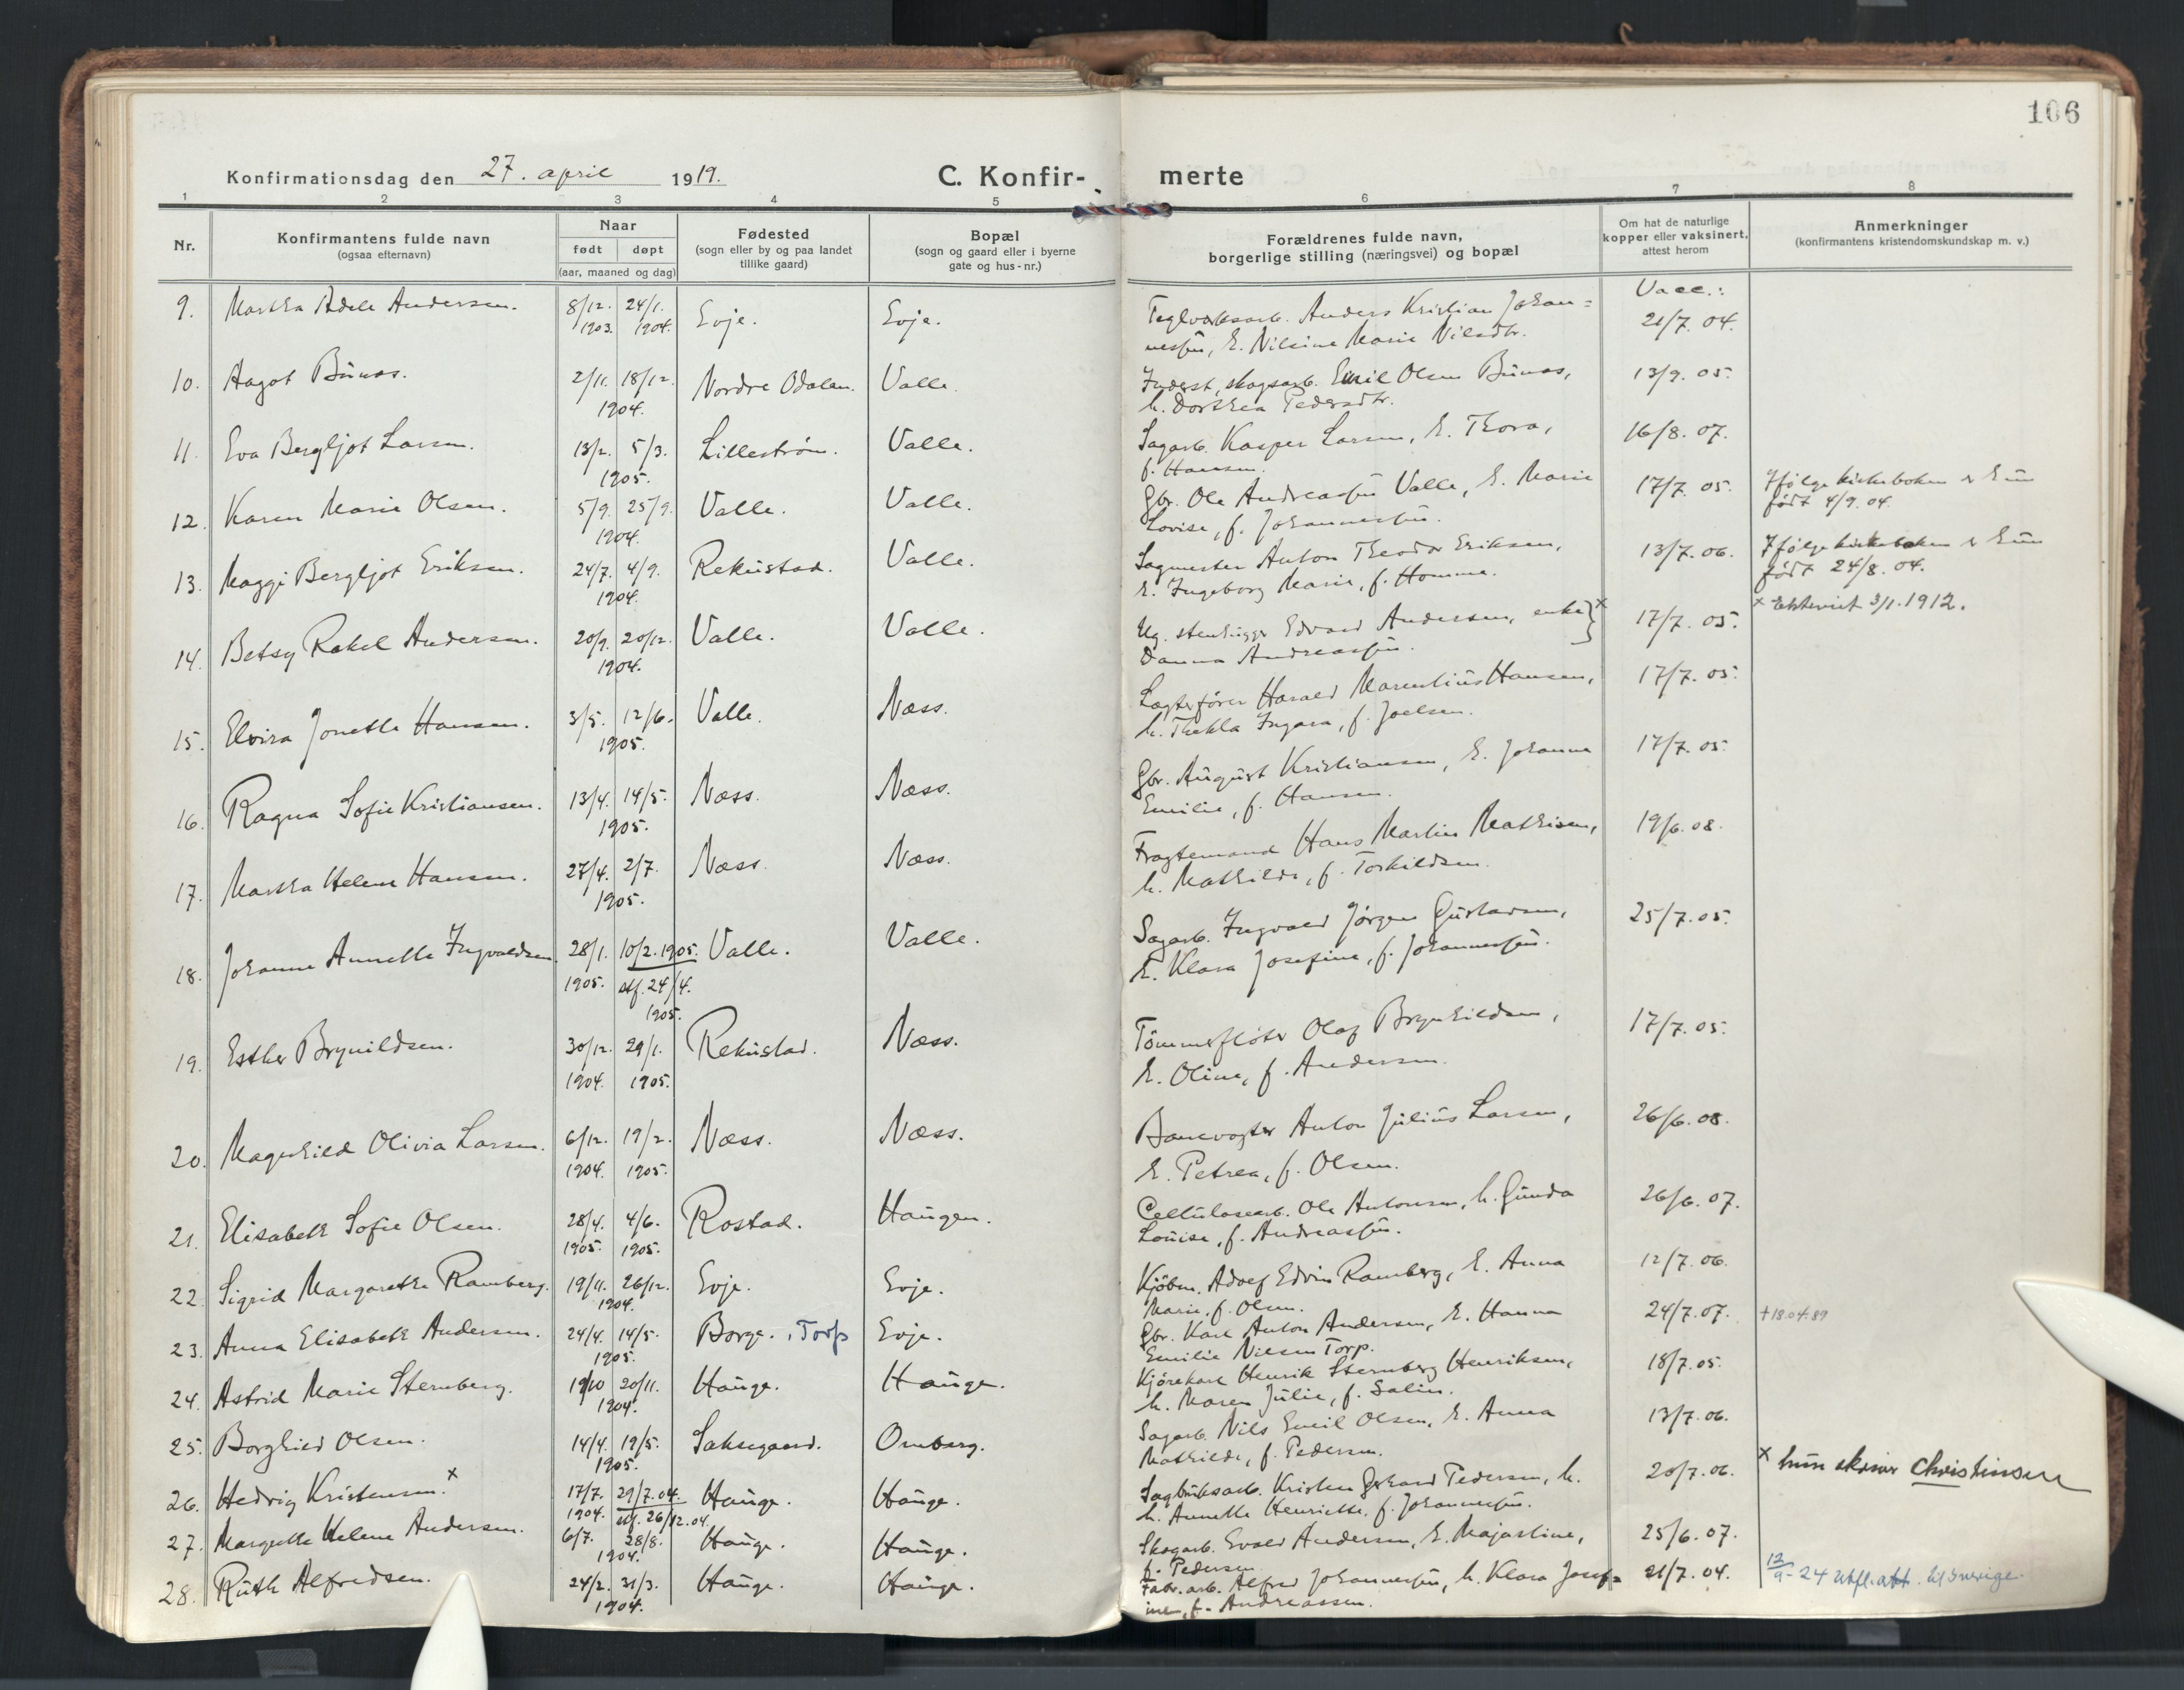 106
Konfirmationsdag den 27. april 1919. C. Konfir- merte
1 2 3 4 5 6 7 8
Nr. Konfirmantens fulde navn (ogsaa efternavn) Naar født døpt (aar, maaned og dag) Fødested (sogn eller by og paa landet tillike gaard) Bopæl (sogn og gaard eller i byerne gate og hus-nr.) Forældrenes fulde navn, borgerlige stilling (næringsvei) og bopæl Om hat de naturlige kopper eller vaksinert, attest herom Anmerkninger (konfirmantens kristendomskundskap m. v.)
Vacc.:
9. Martha Adele Andersen. 8/12. 1903. 24/1. 1904. Evje. Evje. Teglverksarb. Anders Kristian Johan= 21/7. 04.
nessen, h. Nilsine Marie Nilsdtr.
10. Aagot Bünæs. 2/11. 18/12. 1904. Nordre Odalen. Valle. Inderst, skogsarb. Emil Olsen Bünæs, 13/9. 05.
h. Dorthea Pedersdtr.
11. Eva Bergljot Larsen. 13/2. 5/3. 1905. Lillestrøm. Valle. Sagarb. Kasper Larsen, h. Thora, 16/8. 07.
f. Hansen.
12. Karen Marie Olsen. 5/9. 25/9. 1904. Valle. Valle. Gbr. Ole Andreassen Valle, h. Marie 17/7. 05. Ifølge kirkeboken er hun
Lovise, f. Johannessen. født 4/9. 04.
13. Maggi Bergljot Eriksen. 24/7. 4/9. 1904. Rekustad. Valle. Sagmester Anton Theodor Eriksen, 13/7. 06. Ifølge kirkeboken er hun
h. Ingeborg Marie, f. Homme. født 24/8. 04.
14. Betsy Rakel Andersen. 20/9. 20/12. 1904. Valle. Valle. Ug. stenhugger Edvard Andersen, enke x 17/7. 05. x Ekteviet 3/1. 1912.
Danna Andreassen.
15. Elvira Jonette Hansen. 3/5. 12/6. 1905. Valle. Næss. Lægterfører Harald Marentius Hansen, 17/7. 05.
h. Thekla Ingara, f. Joelsen.
16. Ragna Sofie Kristiansen. 13/4. 14/5. 1905. Næss. Næss. Gbr. August Kristiansen, h. Johanne 17/7. 05.
Emilie, f. Hansen.
17. Martha Helene Hansen. 27/4. 2/7. 1905. Næss. Næss. Fragtemand Hans Martin Mathisen, 19/6. 08.
h. Mathilde, f. Torkildsen.
18. Johanne Annette Ingvaldsen. 28/1. 1905. 10/2. 1905. stf. 24/4. 1905. Valle. Valle. Sagarb. Ingvald Jørgen Gustavsen, 25/7. 05.
h. Klara Josefine, f. Johannessen.
19. Esther Brynildsen. 30/12. 1904. 29/1. 1905. Rekustad. Næss. Tømmerfløter Olaf Brynhildsen, 17/7. 05.
h. Oline, f. Andersen.
20. Magnhild Olivia Larsen. 6/12. 1904. 19/2. 1905. Næss. Næss. Banevogter Anton Julius Larsen, 26/6. 08.
h. Petrea, f. Olsen.
21. Elisabeth Sofie Olsen. 28/4. 1905. 4/6. 1905. Rostad. Haugen. Cellulosearb. Ole Antonsen, h. Gunda 26/6. 07.
Louise, f. Andreassen.
22. Sigrid Margarethe Ramberg. 19/11. 26/12. 1904. Evje. Evje. Kjøbm. Adolf Edvin Ramberg, h. Anna 12/7. 06.
Marie, f. Olsen.
23. Anna Elisabeth Andersen. 24/4. 14/5. 1905. Borge. , Torp Evje. Gbr. Karl Anton Andersen, h. Hanna 24/7. 07. † 18.04.89
Emilie Nilsen Torp.
24. Astrid Marie Sternberg. 19/10 20/11. 1904. Hauge. Hauge. Kjørekarl Henrik Sternberg Henriksen, 18/7. 05.
h. Maren Julie, f. Salin.
25. Borghild Olsen. 14/4. 19/5. 1905. Saksegaard. Omberg. Sagarb. Nils Emil Olsen, h. Anna 13/7. 06.
Mathilde, f. Pedersen.
26. Hedvig Kristensen. x 17/7. 1904. 29/7. 04. stf. 26/12. 04. Hauge. Hauge. Sagbruksarb. Kristen Gerhard Pedersen, h. 20/7. 06. x hun skriver Christensen
h. Annette Henriette, f. Johannessen.
27. Margrethe Helene Andersen. 6/7. 28/8. 1904. Hauge. Hauge. Skogarb. Evald Andersen, h. Majastina, 25/6. 07.
f. Pedersen.
28. Ruth Alfredsen. 24/2. 31/3. 1904. Hauge. Hauge. Fabr. arb. Alfred Johannessen, h. Klara Josef= 21/7. 04. 12/9 - 24 utfl. att. til Sverige.
ine, f. Andreassen.